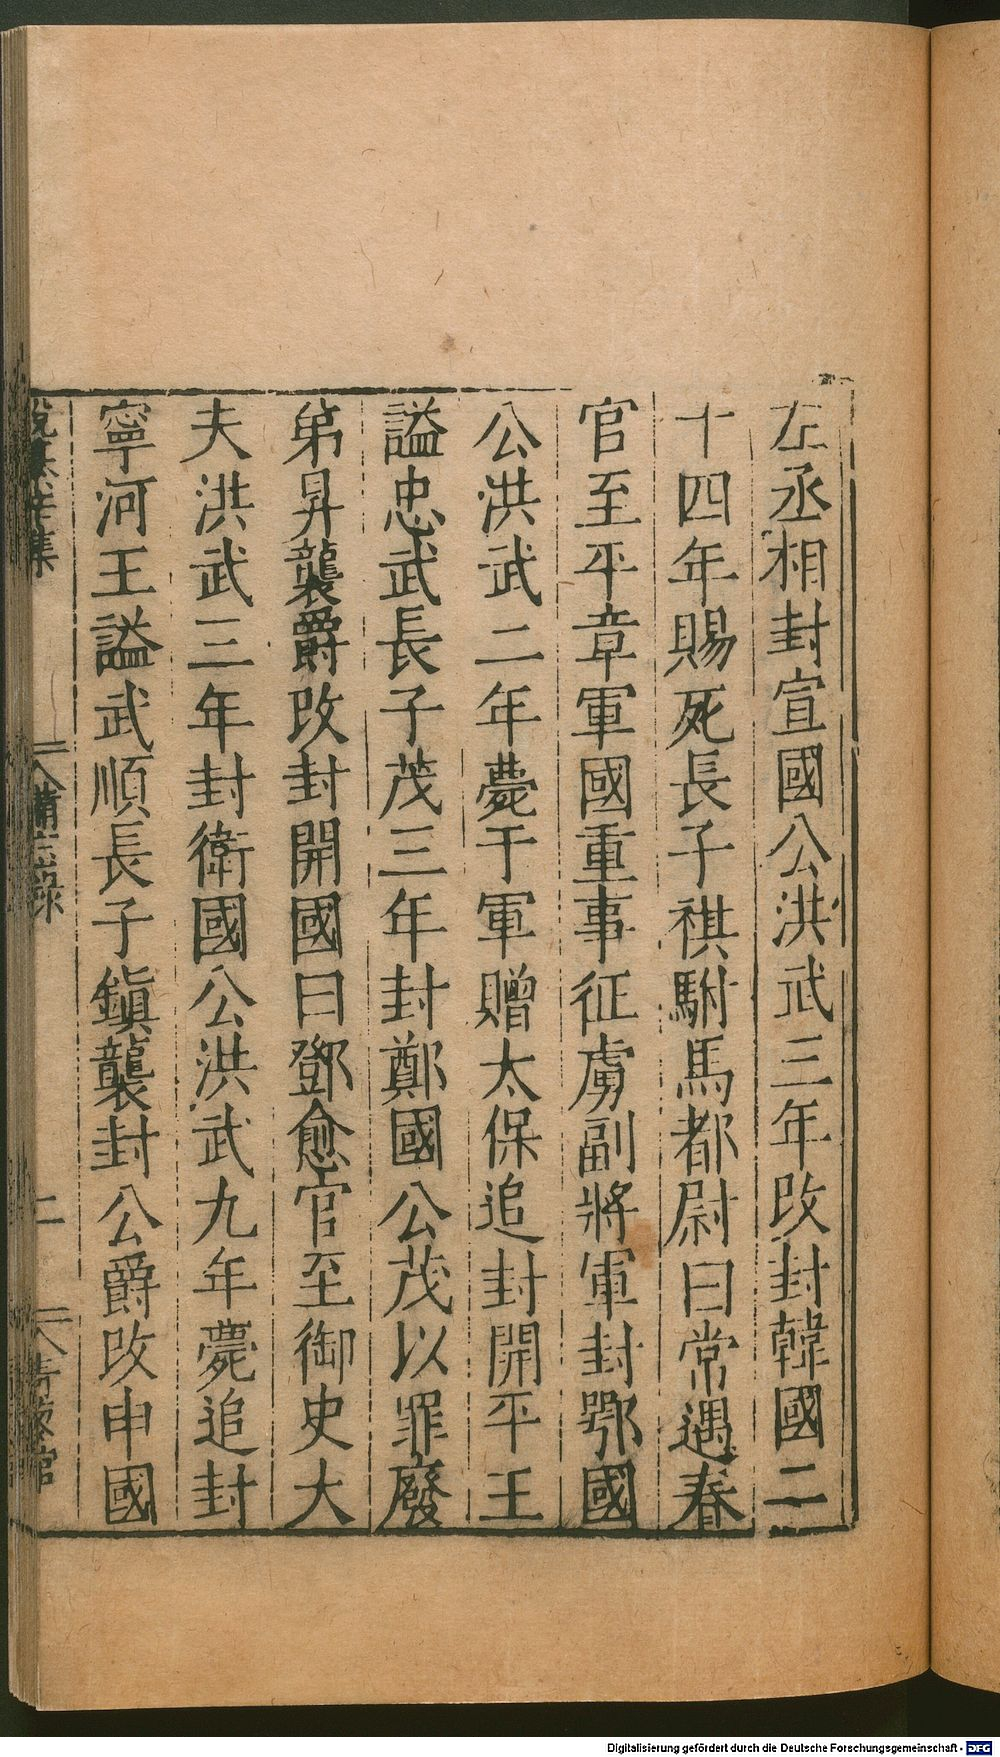 左丞相封宣國公洪武三年改封韓國二
十四年賜死長子祺駙馬都尉曰常遇春
官至平章軍國重事征虜副將軍封鄂國
公洪武二年薨于軍贈太保追封開平王
謚忠武長子茂三年封鄭國公茂以罪廢
第昇襲爵改封開國曰鄧愈官至御史大
夫洪武三年封衛國公洪武九年薨追封
寧河王謚武順長子鎮襲封公爵改申國
集 備忘錄 二 館
Digitalisierung gefördert durch die Deutsche Forschungsgemeinschaft - DFG